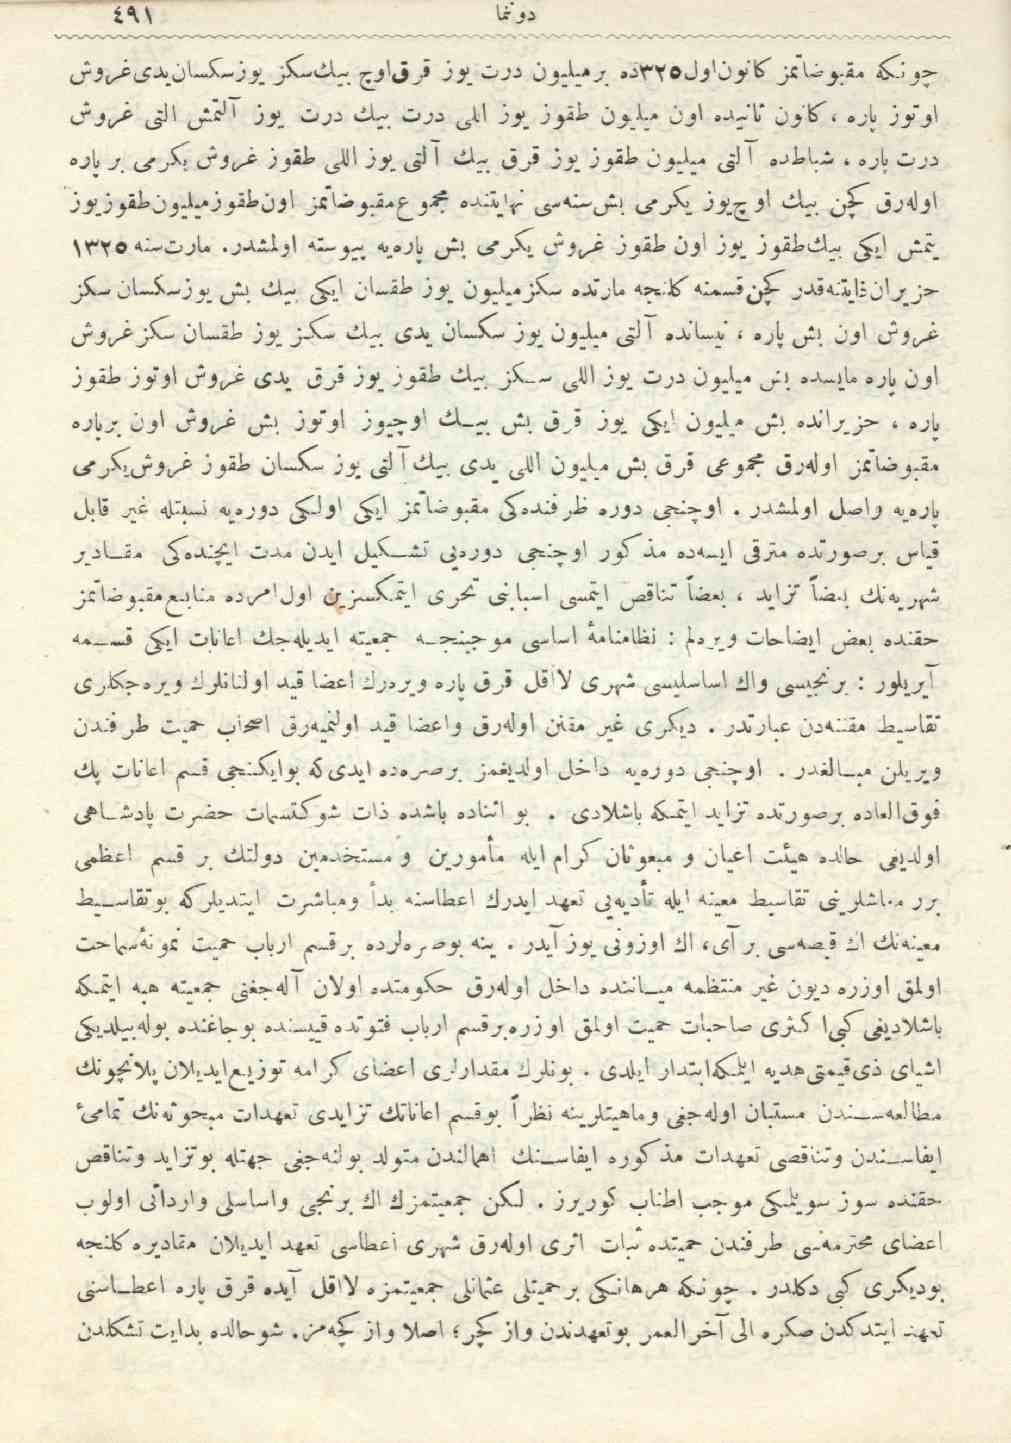 دونما ٤٩١
چونكه مقبوضاتمز كانون‌اول٣٢٥ده برمیلیون درت یوز قرق‌اوچ بیك‌سكز یوزسكسان‌یدی‌غروش
اوتوز پاره ، كانون ثانیده اون میلیون طقوز یوز اللی درت بیك درت یوز آلتمش التی غروش
درت پاره ، شباطده آلتی میلیون طقوز یوز قرق بیك آلتی یوز اللی طقوز غروش یكرمی بر پاره
اوله‌رق كچن بیك اوچ‌یوز یكرمی بش‌سنه‌سی نهایتنده مجموع‌مقبوضاتمز اون‌طقوزمیلیون‌طقوزیوز
یتمش ایكی بیك‌طقوز یوز اون طقوز غروش یكرمی بش پاره‌یه پیوسته اولمشدر. مارت‌سنه ١٣٢٥
حزیران‌غایتنه‌قدر كچن‌قسمنه كلنجه مارتده سكزمیلیون یوز طقسان ایكی بیك بش یوزسكسان سكز
غروش اون بش پاره ، نیسانده آلتی میلیون یوز سكسان یدی بیك سكز یوز طقسان سكزغروش
اون پاره مایسده بش میلیون درت یوز اللی سـكز بیك طقوز یوز قرق یدی غروش اوتوز طقوز
پاره ، حزیرانده بش میلیون ایكی یوز قرق بش بیـك اوچیوز اوتوز بش غروش اون برپاره
مقبوضاتمز اوله‌رق مجموعی قرق بش میلیون اللی یدی بیك‌آلتی یوز سكسان طقوز غروش‌یكرمی
پاره‌یه واصل اولمشدر . اوچنجی دوره ظرفنده‌كی مقبوضاتمز ایكی اولكی دوره‌یه نسبتله غیر قابل
قیاس برصورتده مترقی ایسه‌ده مذكور اوچنجی دوره‌یی تشـكیل ایدن مدت ایچنده‌كی مقـادیر
شهریه‌نك بعضاً تزاید ، بعضاً تناقص ایتمسی اسبابنی تحری ایتمكسزین اول‌امرده منابع‌مقبوضاتمز
حقنده بعض ایضاحات ویره‌لم : نظامنامۀ اساسی موجبنجـه جمعیته ایدیله‌جك اعانات ایكی قسـمه
آیریلور : برنجیسی واك اساسلیسی شهری لااقل قرق پاره ویره‌رك اعضا قید اولنانلرك ویره‌جكلری
تقاسیط مقننه‌دن عبارتدر . دیكری غیر مقنن اوله‌رق واعضا قید اولنمیه‌رق اصحاب حمیت طرفندن
ویریلن مبـالغدر . اوچنجی دوره‌یه داخل اولدیغمز برصره‌ده ایدی‌كه بوایكنجی قسم اعانات پك
فوق‌العاده برصورتده تزاید ایتمكه باشلادی . بو اثناده باشده ذات شوكتسمات حضرت پادشـاهی
اولدیغی حالده هیئت اعیان و مبعوثان كرام ایله مأمورین و مستخدمین دولتك بر قسم اعظمی
برر معاشلرینی تقاسیط معینه ایله تأدیه‌یی تعهد ایدرك اعطاسنه بدأ ومباشرت ایتدیلركه بوتقاسـیط
معینه‌نك اك قیصه‌سی بر آی، اك اوزونی یوز آیدر . ینه بوصره‌لرده برقسم ارباب حمیت نمونۀسماحت
اولمق اوزره دیون غیر منتظمه میـاننده داخل اوله‌رق حكومتده اولان آله‌جغنی جمعیته هبه ایتمكه
باشلادیغی كبی‌ا كثری صاحبات حمیت اولمق اوزره‌برقسم ارباب فتوتده قییسنده بوجاغنده بوله‌بیلدیكی
اشیای ذی‌قیمتی‌هدیه ایلمكه‌ابتدار ایلدی . بونلرك مقدارلری اعضای كرامه توزیع‌ایدیلان پلانچونك
مطالعه‌سـندن مستبان اوله‌جغی وماهیتلرینه نظراً بوقسم اعاناتك تزایدی تعهدات مبحوثه‌نك تمامئ
ایفاسـندن وتناقصی تعهدات مذكوره ایفاسـنك اهمالندن متولد بولنه‌جغی جهتله بوتزاید وتناقص
حقنده سوز سویلمكی موجب اطناب كوریرز . لكن جمعیتمزك اك برنجی واساسلی وارداتی اولوب
اعضای محترمه‌سی طرفندن حمیتده ثبات اثری اوله‌رق شهری اعطاسی تعهد ایدیلان مقادیره كلنجه
بودیكری كبی دكلدر . چونكه هرهانكی برحمیتلی عثمانلی جمعیتمزه لااقل آیده قرق پاره اعطـاسنی
تعهد ایتدكدن صكره الی آخرالعمر بوتعهدندن واز كچر؛ اصلا واز كچه‌مز. شوحالده بدایت تشكلدن